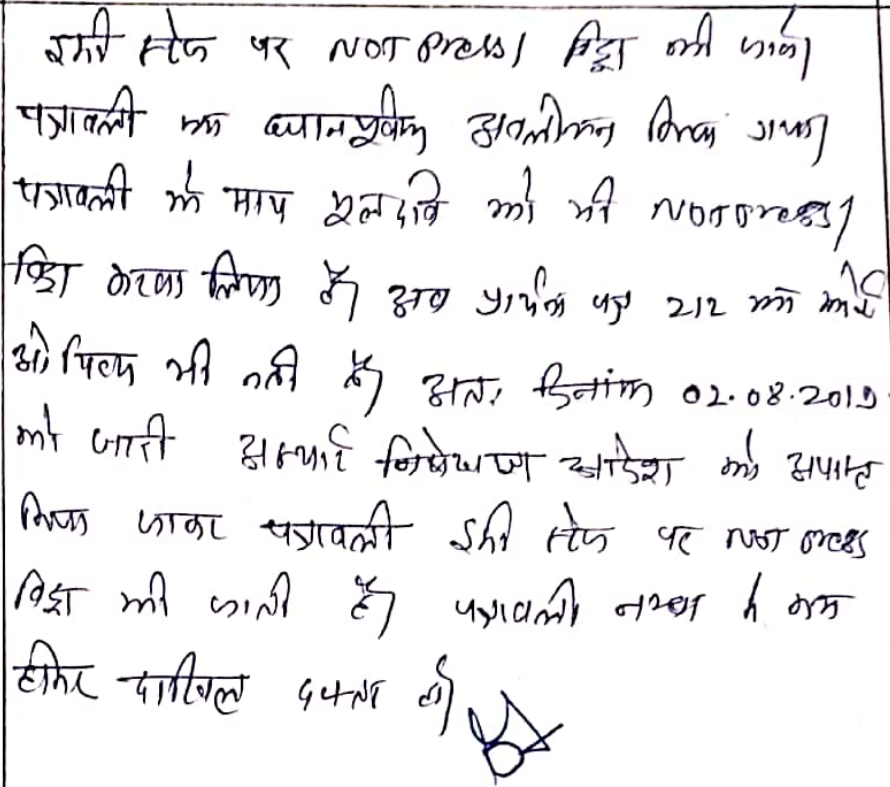 इसी स्टेज पर NOT Press। विड्रा की जावे।
पत्रावली का ध्यानपूर्वक अवलोकन किया गया।
पत्रावली के साथ मूलदावे को भी NOT Press।
विड्रा करवा लिया है। अब प्रार्थना पत्र 212 का कोई
ओचित्य भी नही है। अतः दिनांक 02.08.2019
को जारी अस्थाई निषेधाज्ञा आदेश को अपास्त
किया जाकर पत्रावली इसी स्टेज पर NOT Press
विड्रा की जाती है। पत्रावली नम्बर से कम
होकर दाखिल दफ्तर हो।